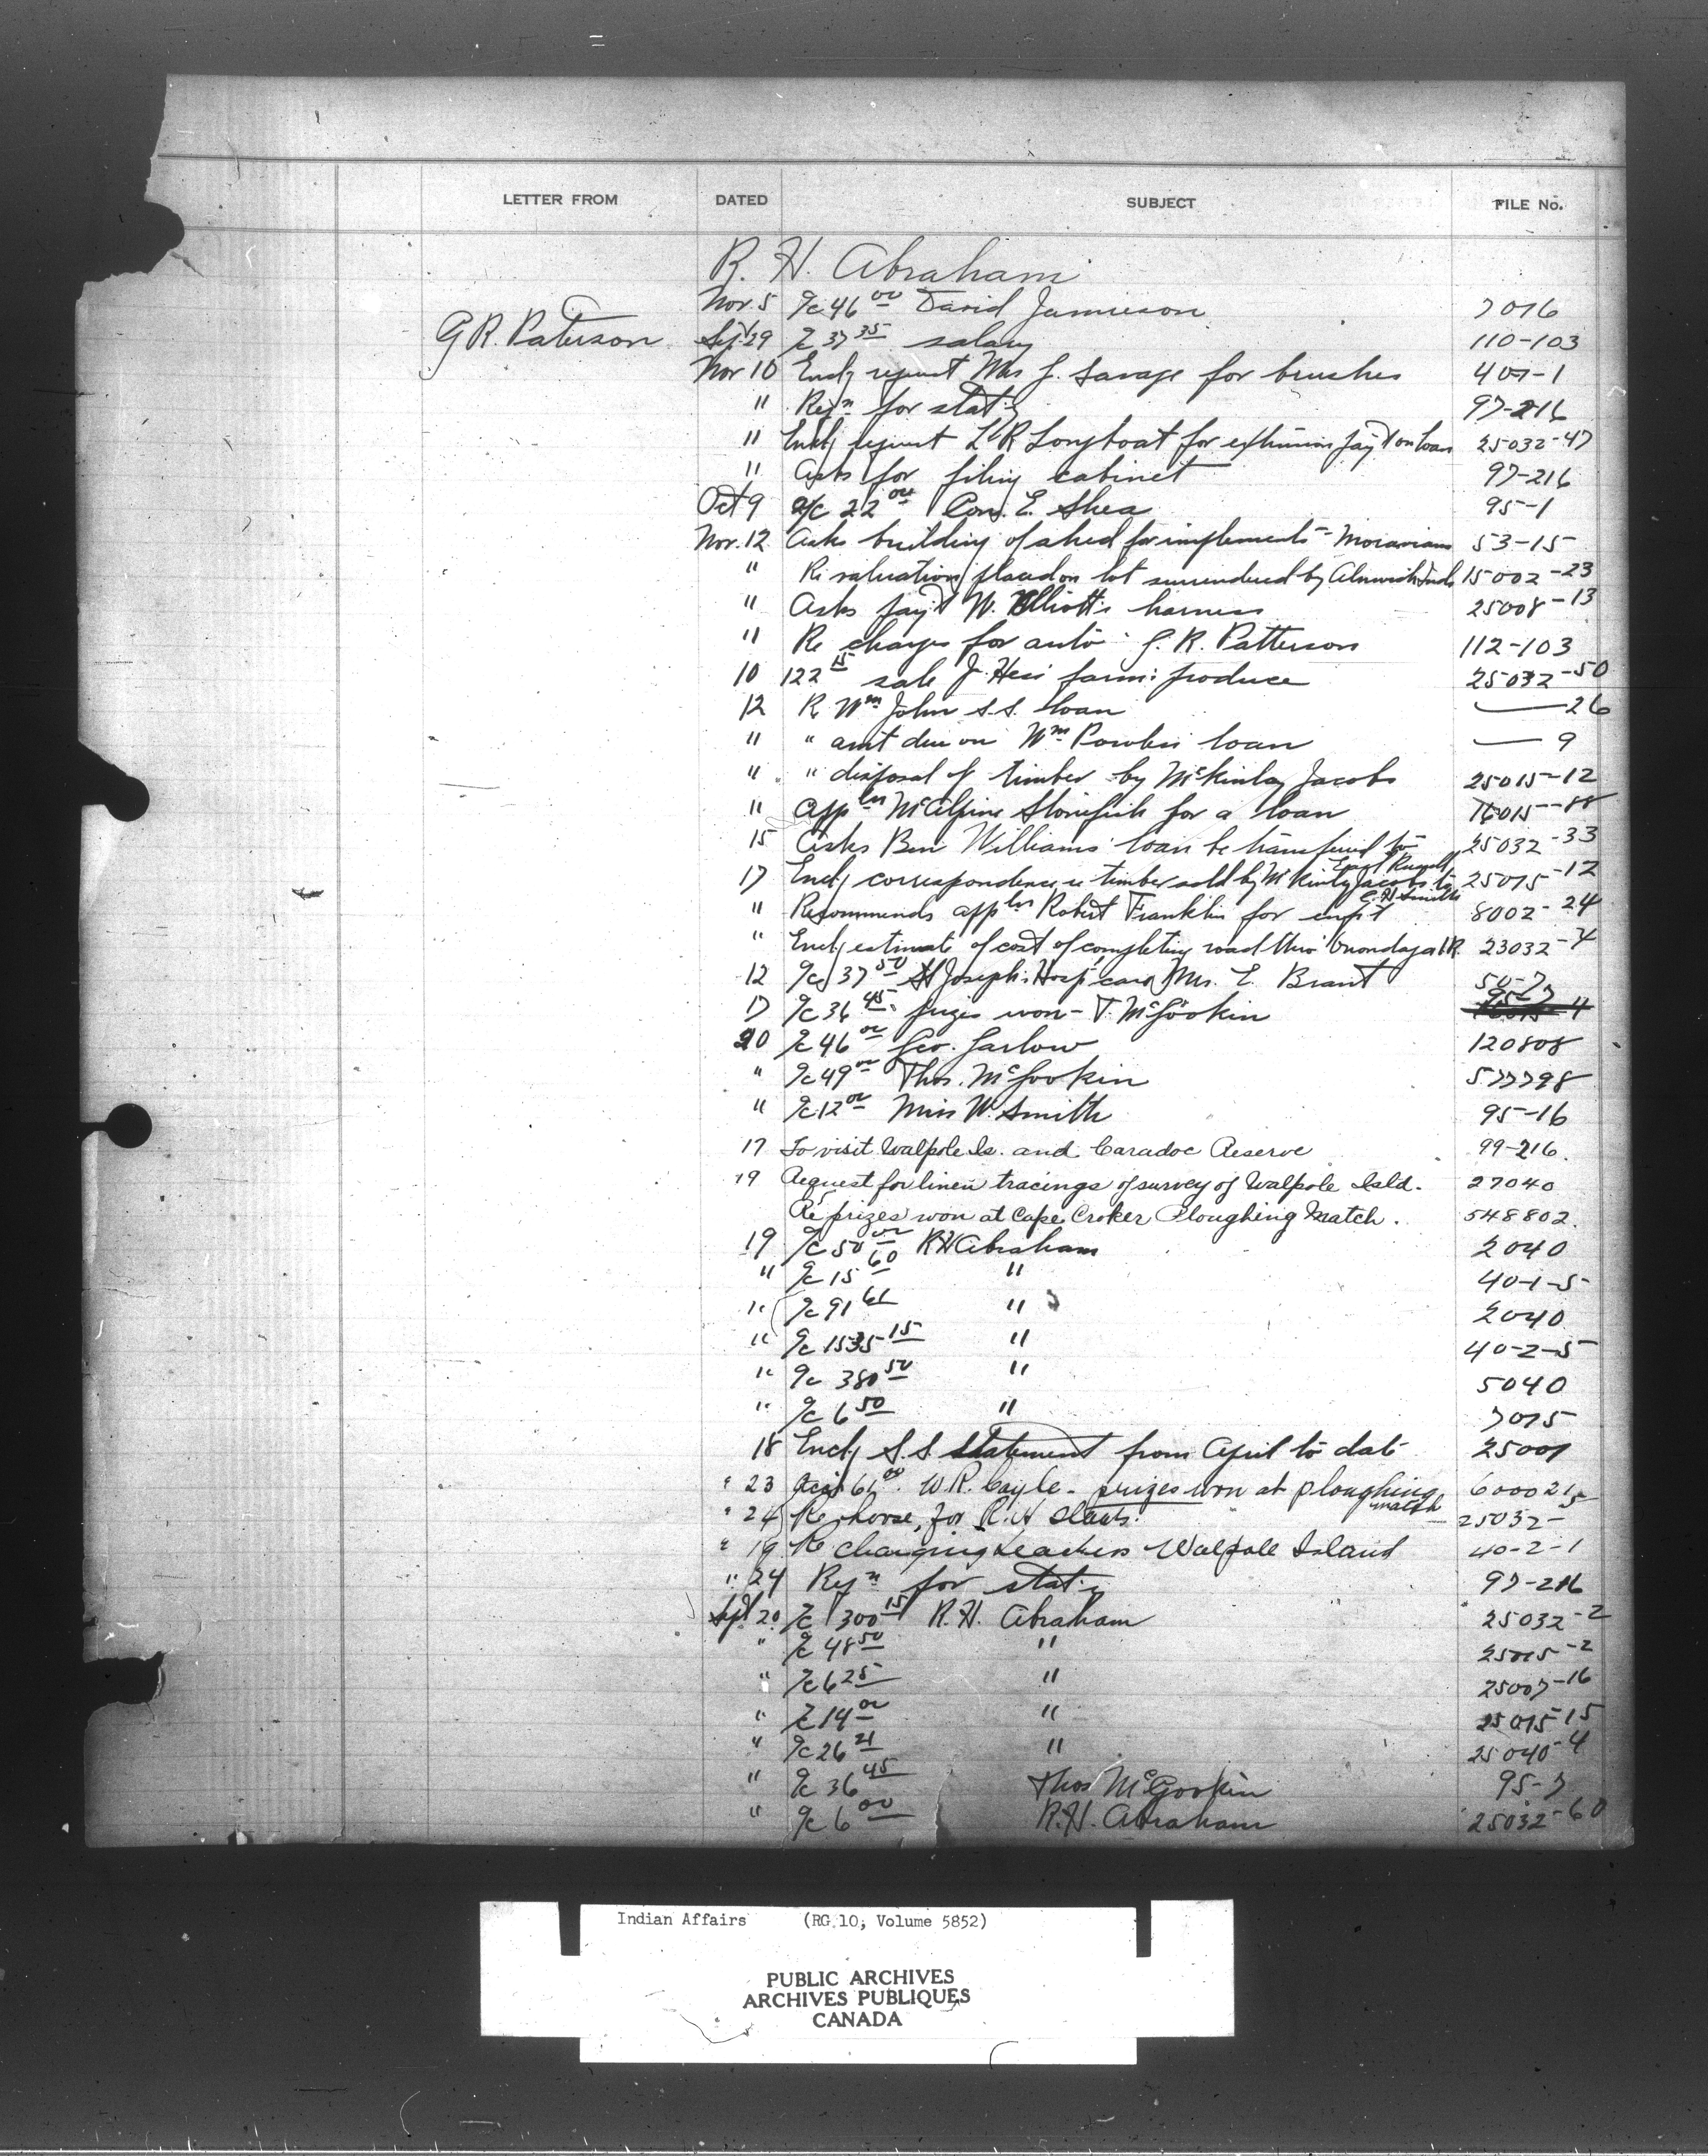 LETTER FROM DATED SUBJECT FILE No.
R. H. Abraham
Nov. 5 a/c 46 00 David Jamieson 7016
G R. Paterson Sept 29 a/c 37 35 salary 110-103
Nov 10 Encl'g request Mrs J. Savage for brushes 407-1
" Reqn for stat'y 97-216
" Encl'g request L R Longboat for extension pay't on loan 25032-47
" Asks for filing cabinet 97-216
Oct 9 a/c 22 00 E. Shea 95-1
Nov. 12 Asks building of shed for implements - Moravians 53-15
" Re valuation placed on lot surrendered by Alnwick Inds 15002-23
" Asks pay't W. Elliott's harness 25008-13
" Re charges for auto G. R. Patterson 112-103
10 122 15 sale J. Hess farm produce 25032-50
12 Re Wm John S.S. loan —26
" " am't due on Wm Powless loan — 9
" " disposal of timber by McKinley Jacobs 25015-12
" Appln McAlpine Stonefish for a loan 16015-88
15 Asks Ben Williams' loan be transferred to 25032-33
Earl Russell
17 Encl'g correspondence re timber sold by McKinley Jacobs to 25015-12
C.H. Smith
" Recommends appln Robert Franklin for enf't 8002-24
" Encl'g estimate of cost of completing road thro' Onondaga I.R. 23032-4
12 a/c 37 50 St Joseph's Hosp care Mrs. E. Brant 50-7
17 a/c 36 45 prizes won - T. McGookin 95-7
20 a/c 46 00 Geo. Garlow 120808
" a/c 49 00 Thos. McGookin 577798
" a/c 12 00 Miss W. Smith 95-16
17 To visit Walpole Is. and Caradoc Reserve 99-216.
19 Request for linen tracings of survey of Walpole Isld. 27040
Re prizes won at Cape Croker Ploughing Match. 548802.
19 a/c 50 00 R H Abraham 2040
" a/c 15 60 " 40-1-5
" a/c 91 61 " 2040
" a/c 1535 15 " 40-2-5
" a/c 380 50 " 5040
" a/c 6 50 " 7015
18 Encl'g S.S. statement from April to date 25007
" 23 61 00. W.R. Cayle - prizes won at ploughing 600021
match
" 24 Re horse, for R. H Staats. 25032-5
" 19 Re changing teachers Walpole Island 40-2-1
" 24 Reqn for stat'y 97-216
Sept 20 a/c 300 15 R. H. Abraham 25032-2
" a/c 48 50 " 25015-2
" a/c 6 25 " 25007-16
" a/c 14 00 " 25015-15
" a/c 26 21 " 25040-4
" a/c 36 45 Thos McGookin 95-7
" a/c 6 00 R. H. Abraham 25032-60
Indian Affairs (RG 10, Volume 5852)
PUBLIC ARCHIVES
ARCHIVES PUBLIQUES
CANADA